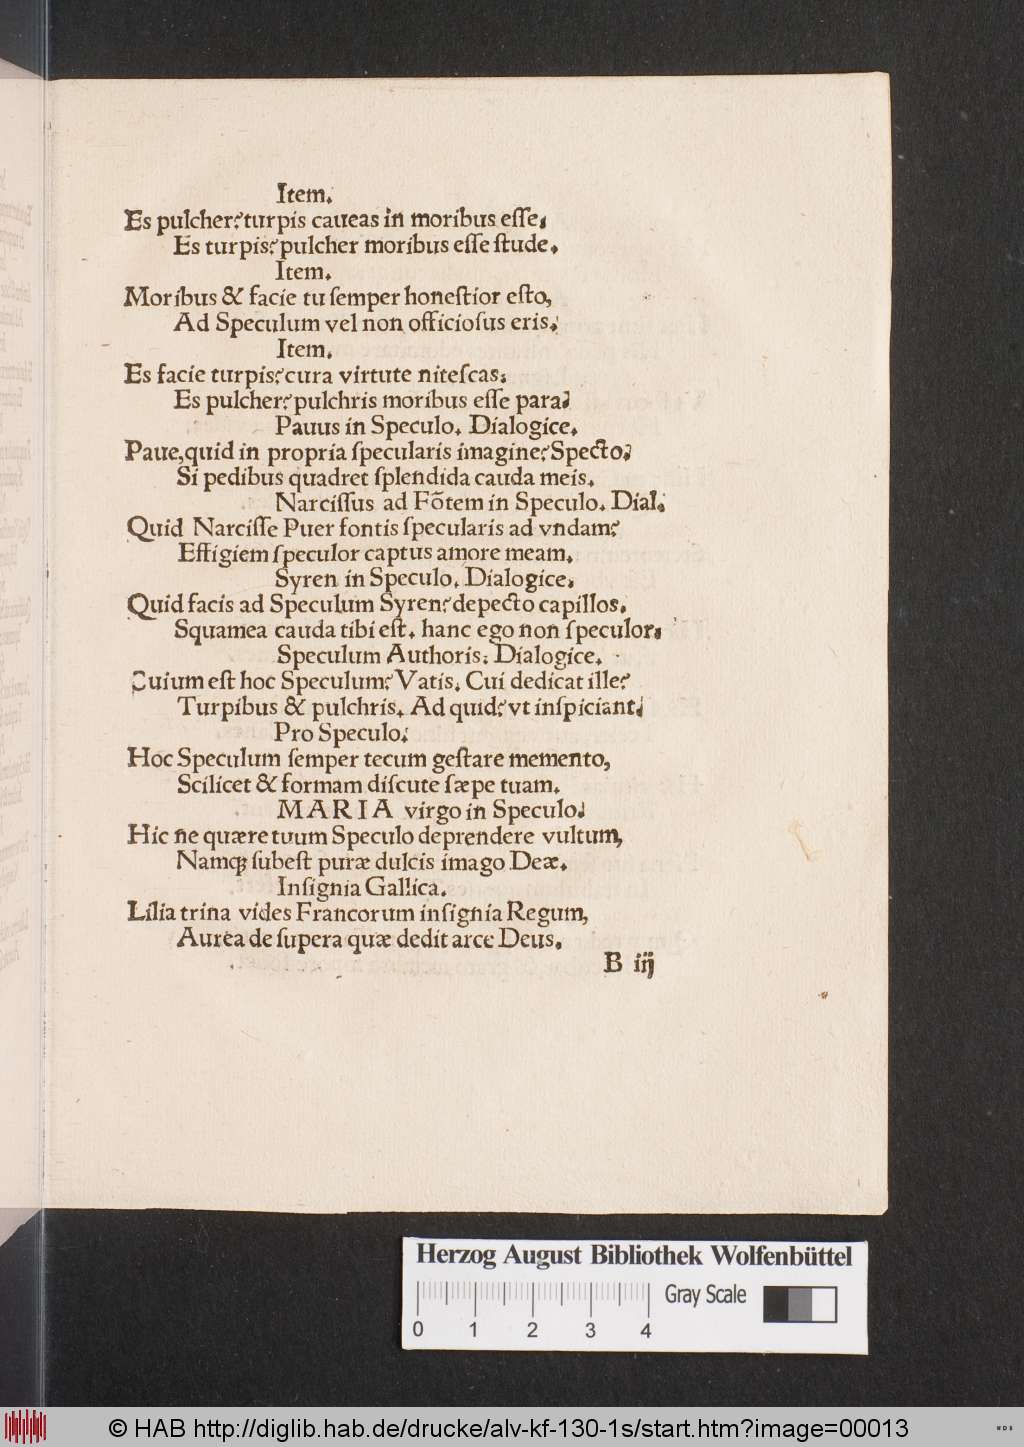 Item.
Es pulcher? turpis caueas in moribus eſſe,
Es turpis? pulcher moribus eſſe ſtude.
Item.
Moribus & facie tu ſemper honeſtior eſto,
Ad Speculum vel non officioſus eris.
Item.
Es facie turpis? cura virtute niteſcas:
Es pulcher? pulchris moribus eſſe para.
Pauus in Speculo. Dialogice.
Paue, quid in propria ſpecularis imagine? Specto.
Si pedibus quadret ſplendida cauda meis.
Narciſſus ad Fõtem in Speculo. Dial.
Quid Narciſſe Puer fontis ſpecularis ad vndam?
Effigiem ſpeculor captus amore meam.
Syren in Speculo. Dialogice.
Quid facis ad Speculum Syren? depecto capillos.
Squamea cauda tibi eſt. hanc ego non ſpeculor.
Speculum Authoris. Dialogice.
Cuium eſt hoc Speculum? Vatis. Cui dedicat ille?
Turpibus & pulchris. Ad quid? vt inſpiciant.
Pro Speculo.
Hoc Speculum ſemper tecum geſtare memento,
Scilicet & formam diſcute ſæpe tuam.
MARIA virgo in Speculo.
Hic ne quære tuum Speculo deprendere vultum,
Namq; ſubeſt puræ dulcis imago Deæ.
Inſignia Gallica.
Lilia trina vides Francorum inſignia Regum,
Aurea de ſupera quæ dedit arce Deus.
B iij
Herzog August Bibliothek Wolfenbüttel
Gray Scale
0 1 2 3 4
© HAB http://diglib.hab.de/drucke/alv-kf-130-1s/start.htm?image=00013